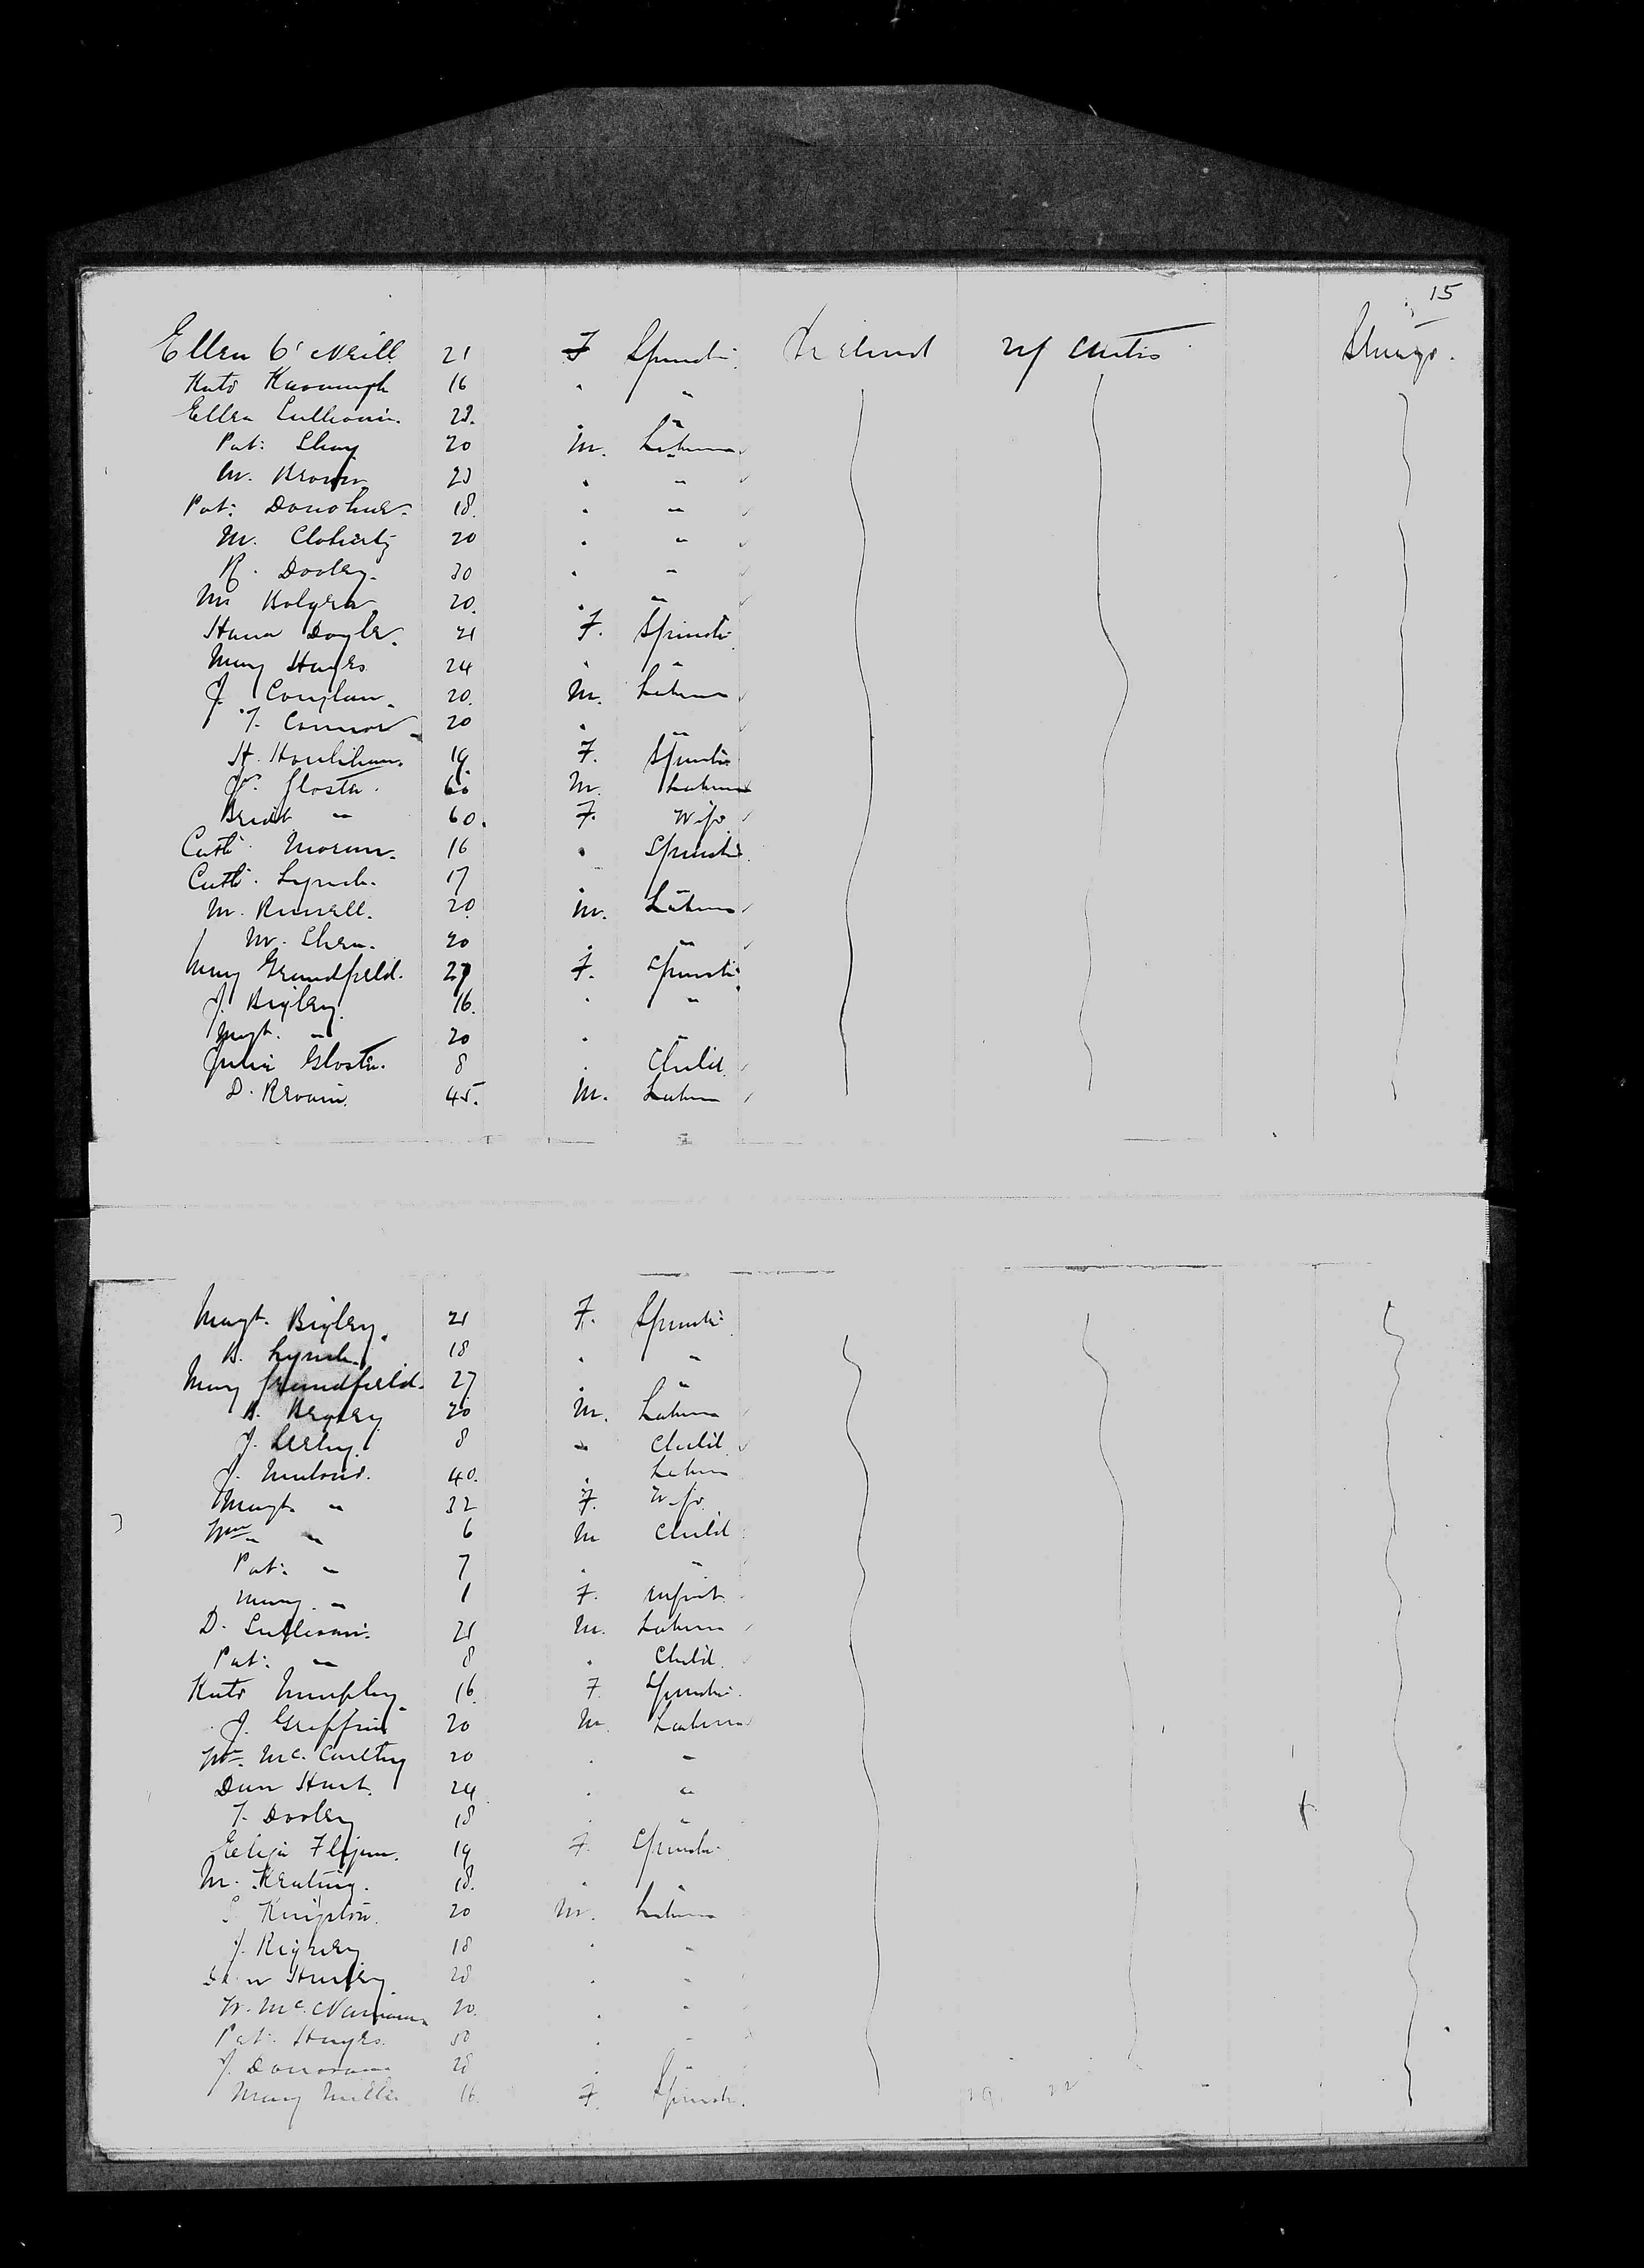 15
Ellen O'Neill 21 F Spinstr. Ireland U/ States Steerge.
Kate Kavanagh 16 " "
Ellen Sullivan. 22. " "
Pat: Shay 20 M. Labourer
M. Brown 23 " "
Pat: Donohue. 18. " "
M. Cloherty 20 " "
R. Dooley. 30 " "
M Bolger 20. " "
Hana Doyle. 21 F. Spinstr.
Mary Hayes 24 " "
J. Coughlan. 20. M. Labourer
T. Connor 20 " "
H. Houlihan. 19. F. Spinstr
Glosta. 60 M. Labourer
Bridt " 60. F. Wife
Cath: Moran. 16 " Spinstr.
Cath: Lynch. 17 " "
M. Russell. 20. M. Labourer
M. Shea. 20 " "
Mary Grundfield. 27 F. Spinstr.
J. Bigley. 16. " "
Magt. " 20 " "
Julia Glosta. 8 " Child
D. Brown. 45. M. Labour
Magt. Bigley. 21 F. Spinstr.
B. Lynch. 18 " "
Mary Grundfield. 27 " "
B. Begley 20 M. Labour
J. 8 " Child
J. 40. " Labour
Magt. " 32 F. Wife
Wm " 6 M Child
Pat: " 7 " "
Mary " 1 F. Infant.
D. Sullivan. 21 M. Labour
Pat: " 8 " Child.
Kate Murphy 16. F. Spinstr.
J. Griffin 20 M. Labour
Wm. McCarthy 20 " "
Dan Hart. 24 " "
T. Dooley 18 " "
Eliza Flynn. 19 F. Spinstr.
M. Keating. 18. " "
Kingston. 20 M. Labour
J. 18 " "
Hurley 20 " "
W. McNamara 20. " "
Pat: Hayes. 50 " "
J. Donovan 20 " "
Mary Miller 16. F. Spinstr.